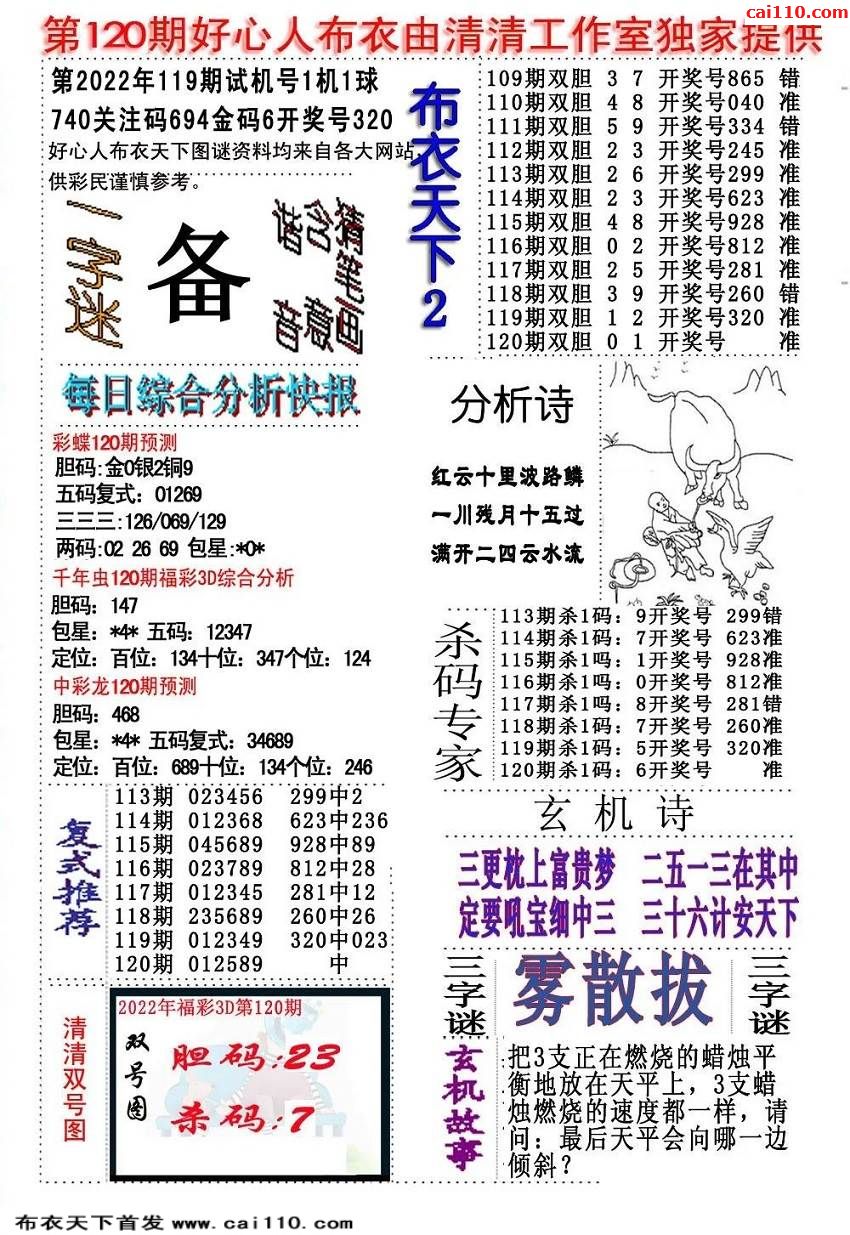 cai110.com
第120期好心人布衣由清清工作室独家提供
第2022年119期试机号1机1球
740关注码694金码6开奖号320
好心人布衣天下图谜资料均来自各大网站,
供彩民谨慎参考。
一字迷
备
猜笔画
含意
谐音
布衣天下2
109期双胆 3 7 开奖号865 错
110期双胆 4 8 开奖号040 准
111期双胆 5 9 开奖号334 错
112期双胆 2 3 开奖号245 准
113期双胆 2 6 开奖号299 准
114期双胆 2 3 开奖号623 准
115期双胆 4 8 开奖号928 准
116期双胆 0 2 开奖号812 准
117期双胆 2 5 开奖号281 准
118期双胆 3 9 开奖号260 错
119期双胆 1 2 开奖号320 准
120期双胆 0 1 开奖号 准
每日综合分析快报
彩蝶120期预测
胆码:金0银2铜9
五码复式：01269
三三三:126/069/129
两码:02 26 69 包星:*0*
千年虫120期福彩3D综合分析
胆码：147
包星：*4* 五码：12347
定位：百位：134十位：347个位：124
中彩龙120期预测
胆码：468
包星：*4* 五码复式：34689
定位：百位：689十位：134个位：246
分析诗
红云十里波路鳞
一川残月十五过
满开二四云水流
杀码专家
113期杀1码：9开奖号 299错
114期杀1码：7开奖号 623准
115期杀1吗：1开奖号 928准
116期杀1吗：0开奖号 812准
117期杀1吗：8开奖号 281错
118期杀1码：7开奖号 260准
119期杀1码：5开奖号 320准
120期杀1码：6开奖号 准
复式推荐
113期 023456 299中2
114期 012368 623中236
115期 045689 928中89
116期 023789 812中28
117期 012345 281中12
118期 235689 260中26
119期 012349 320中023
120期 012589 中
玄机诗
三更枕上富贵梦 二五一三在其中
定要吼宝细中三 三十六计安天下
三字谜
雾散拔
三字谜
清清双号图
2022年福彩3D第120期
双号图
胆码:23
杀码:7
玄机故事
把3支正在燃烧的蜡烛平
衡地放在天平上，3支蜡
烛燃烧的速度都一样，请
问：最后天平会向哪一边
倾斜？
布衣天下首发 www.cai110.com